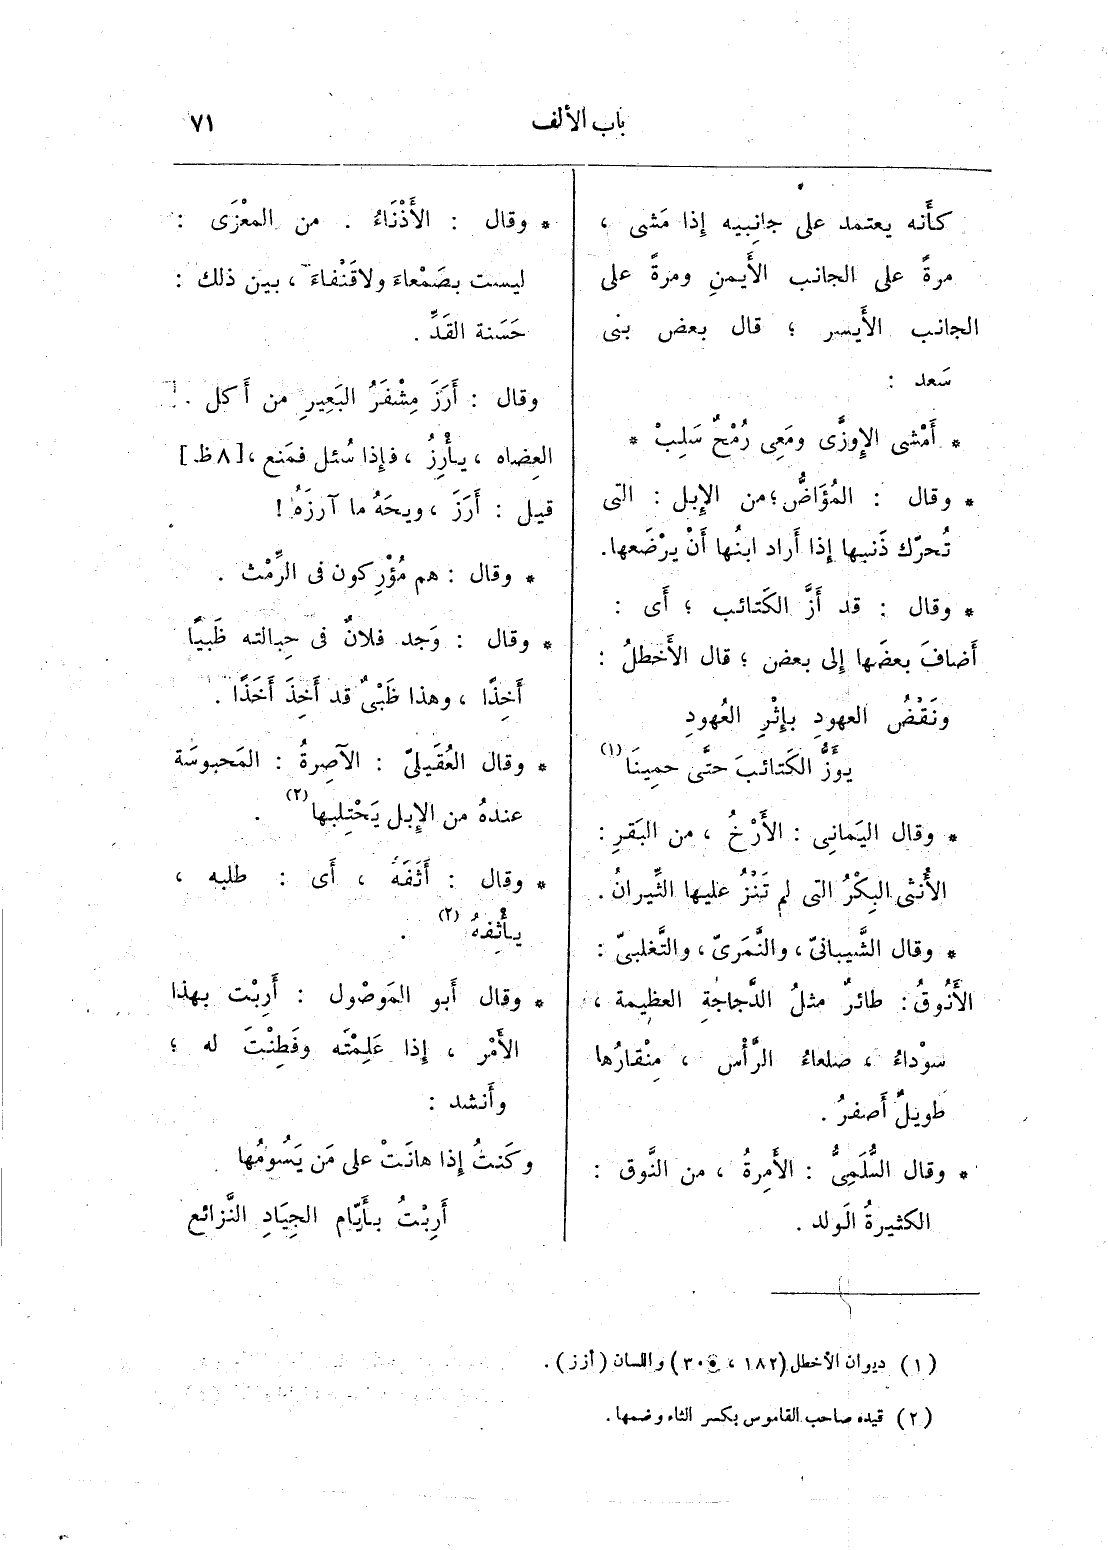 باب الألف
٧١
كأَنه يعتمد على جانِبيه إِذا مَشى ،
مرةً على الجانب الأَيمنِ ومرةً على
الجانب الأَيسر ؛ قال بعض بنى
سَعد :
* أَمْشى الإِوزَّى ومَعِى رُمْحٌ سَلِبْ *
* وقال : المُؤَاضُّ ؛ من الإِبل : التى
تُحرّك ذَنبها إِذا أَراد ابنُها أَنْ يرْضَعها.
* وقال : قد أَزَّ الكَتائب ؛ أَى :
أَضافَ بعضَها إِلى بعض ؛ قال الأَخطلُ :
ونَقْضُ العهودِ بإِثْرِ العُهودِ
يوَزُّ الكَتائبَ حتَّى حمِينَا (١)
* وقال اليَمانِى : الأَرْخُ ، من البَقرِ :
الأُنثى البِكْرُ التى لم تَنْزُ عليها الثِّيرانُ .
* وقال الشَّيبانىّ ، والنَّمَرىّ ، والتَّغلبىّ :
الأَنُوقُ : طائرٌ مثلُ الدَّجاجَةِ العظيمة ،
سوْداءُ ، صلعاءُ الرَّأْس ، مِنْقارُها
طويلٌ أَصفرُ .
* وقال السُّلَمِىُّ : الأَمِرةُ ، من النَّوق :
الكثيرةُ الَولد .
* وقال : الأَذْنَاءُ . من المعْزَى :
ليست بصَمْعاءَ ولاقَنْفاءَ ، بين ذلك :
حَسَنة القَدِّ .
وقال : أَرَزَ مِشْفَرُ البَعِيرِ من أَكل .
العِضاه ، يأْرِزُ ، فإِذا سُئل فمَنع ، [٨ظ]
قيل : أَرَزَ ، ويحَهُ ما آرزَهُ !
* وقال : هم مُؤْرِكون فى الرِّمْث .
* وقال : وَجد فلانٌ فى حِبالته ظَبيًا
أَخِذًا ، وهذا ظَبْىٌ قد أَخِذَ أَخَذًا .
* وقال العُقَيلىّ : الآصِرةُ : المَحبوسَة
عندهُ من الإِبل يَحْتِلبها (٢) .
* وقال : أَثَفَهُ ، أَى : طلبه ،
يأْثِفهُ (٢) .
* وقال أَبو المَوصْول : أَرِبْت بهذا
الأَمْر ، إِذا عَلِمْتَه وفَطِنْتَ له ؛
وأَنشد :
وكَنتُ إِذا هانَتْ على مَن يَسُومُها
أَرِبْتُ بأَيّام الجِيَادِ النَّزائع
(١) ديوان الأخطل (١٨٢ ، ٣٠٥) واللسان (أزز) .
(٢) قيده صاحب القاموس بكسر الثاء وضمها .